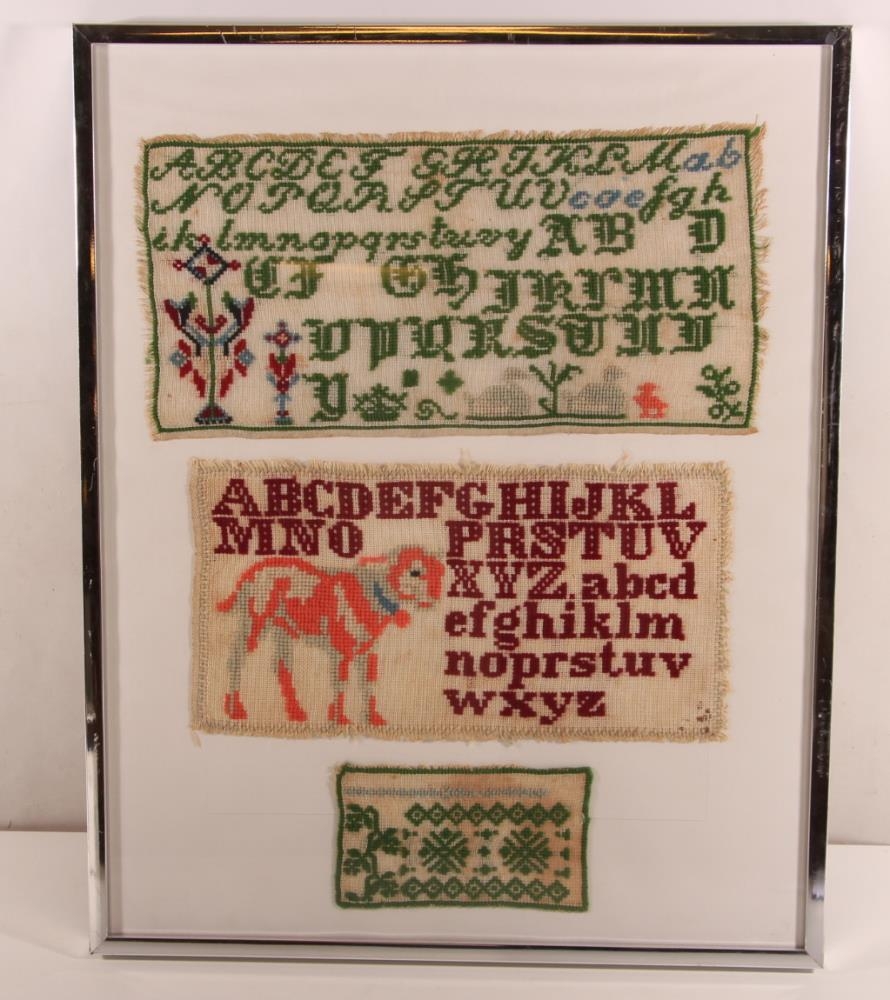 ABCDEF GHIJKLM ab
NOPQRSTUV cdefgh
iklmnopqrstuvy AB D
CF GH IKLMN
OPQRSTUV
Y
ABCDEFGHIJKL
MNO PRSTUV
XYZ abcd
efghiklm
noprstuv
wxyz